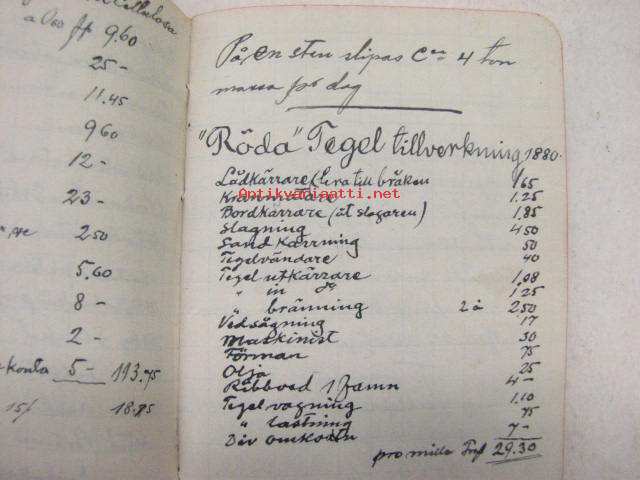 Cellulosa
a 000 ft 9.60
25 -
11.45
960
12 -
23 -
250
5.60
8 -
2 -
konto 5 - 193.75
15/ 18.85
På en sten slipas Ca 4 ton
massa pr dag
"Röda" Tegel tillverkning 1880.
Lådkärrare (lera till bråken 165
1.25
Bordkärrare (åt slagaren) 1.85
Slagning 450
Sand Kärrning 50
Tegelvändare 40
Tegel utkärrare 1.08
" in do 1.25
" bränning 2 à 250
Vedsågning 17
Maskinist 50
Förman 75
Olja 25
Ribbved 1 famn 4 -
Tegel vagning 1.10
" lastning 75
Div omkostn 7 -
pro mille Fmk 29.30
Antikvariaatti.net